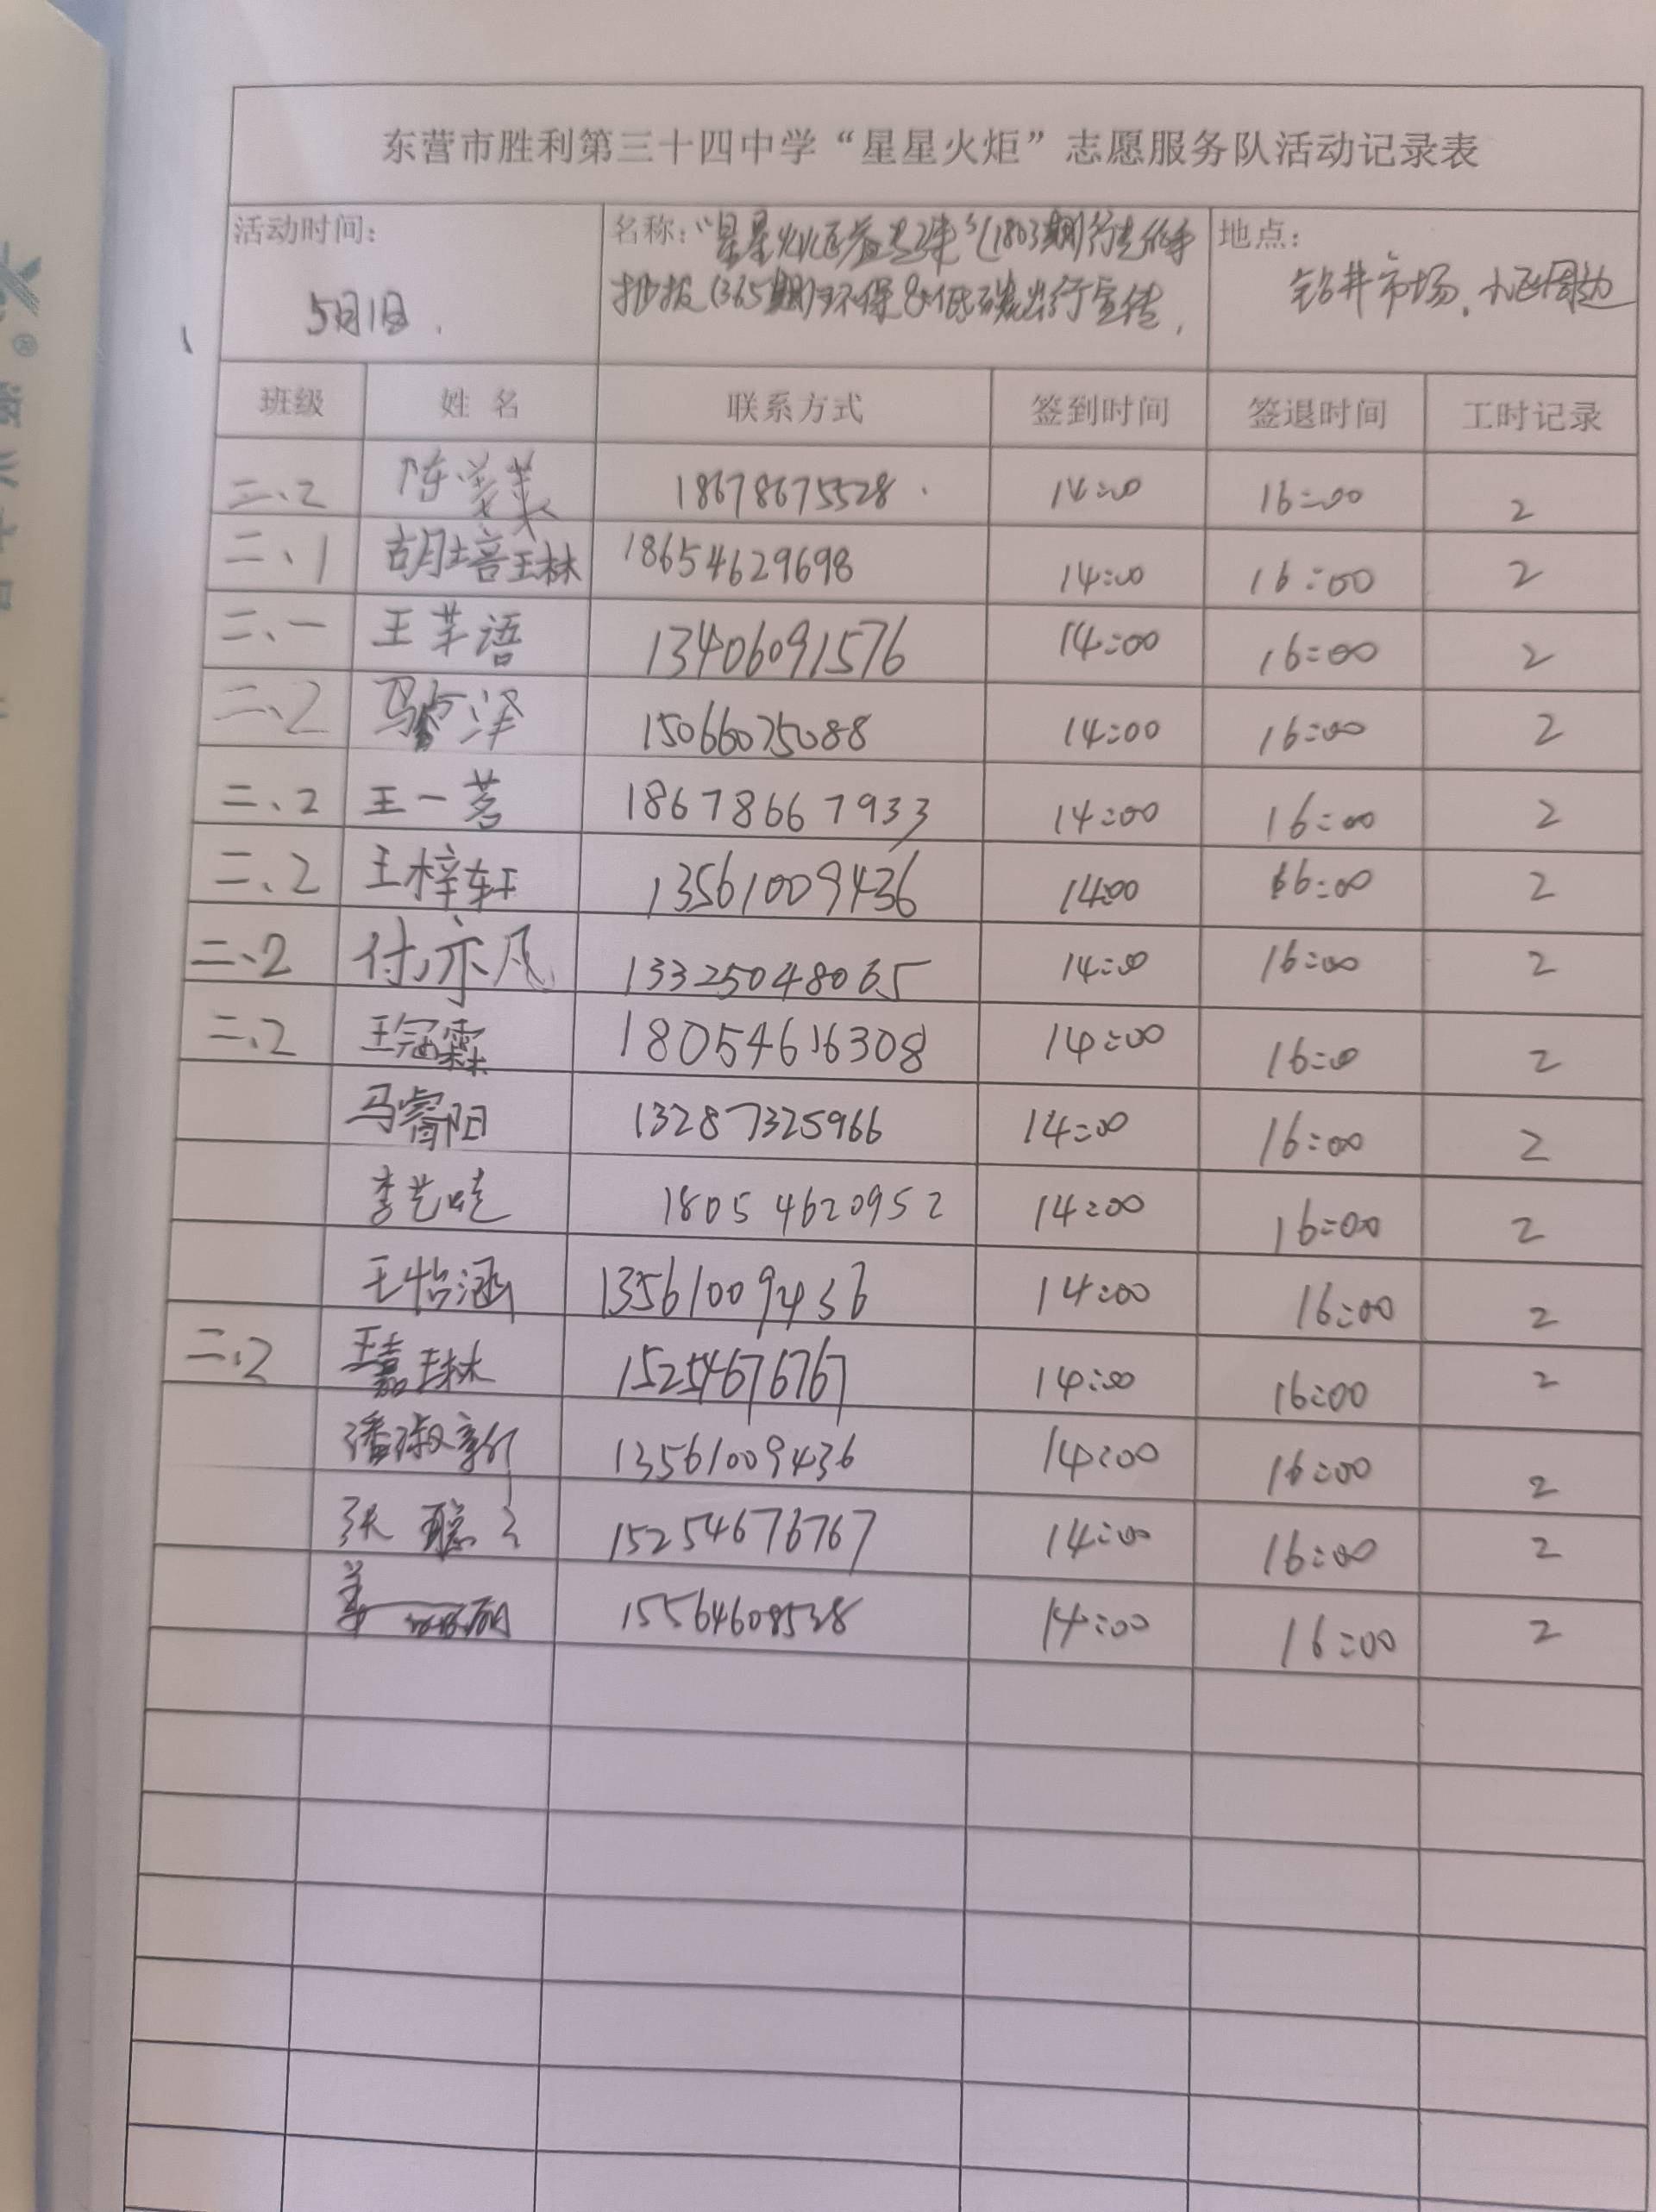 东营市胜利第三十四中学“星星火炬”志愿服务队活动记录表
活动时间: 名称:“星星火炬益 (1803期)行走 地点:
手抄报(365期)环保&低碳出行宣传, 钻井市场、小区周边
5月1日.
班级 姓名 联系方式 签到时间 签退时间 工时记录
二、2 陈 18678675528 14:00 16:00 2
二、1 胡培琳 18654629698 14:00 16:00 2
二、一 王芊语 13406091576 14:00 16:00 2
二、2 马 泽 15066075088 14:00 16:00 2
二、2 王一茗 18678667933 14:00 16:00 2
二、2 王梓轩 13561009436 14:00 16:00 2
二、2 付亦凡 13325048065 14:00 16:00 2
二、2 王冠霖 18054616308 14:00 16:00 2
马睿阳 13287325966 14:00 16:00 2
李艺 18054620952 14:00 16:00 2
王怡涵 13561009436 14:00 16:00 2
二、2 王嘉琳 15254676767 14:00 16:00 2
潘淑新 13561009436 14:00 16:00 2
张聪 15254676767 14:00 16:00 2
姜一 15564608538 14:00 16:00 2